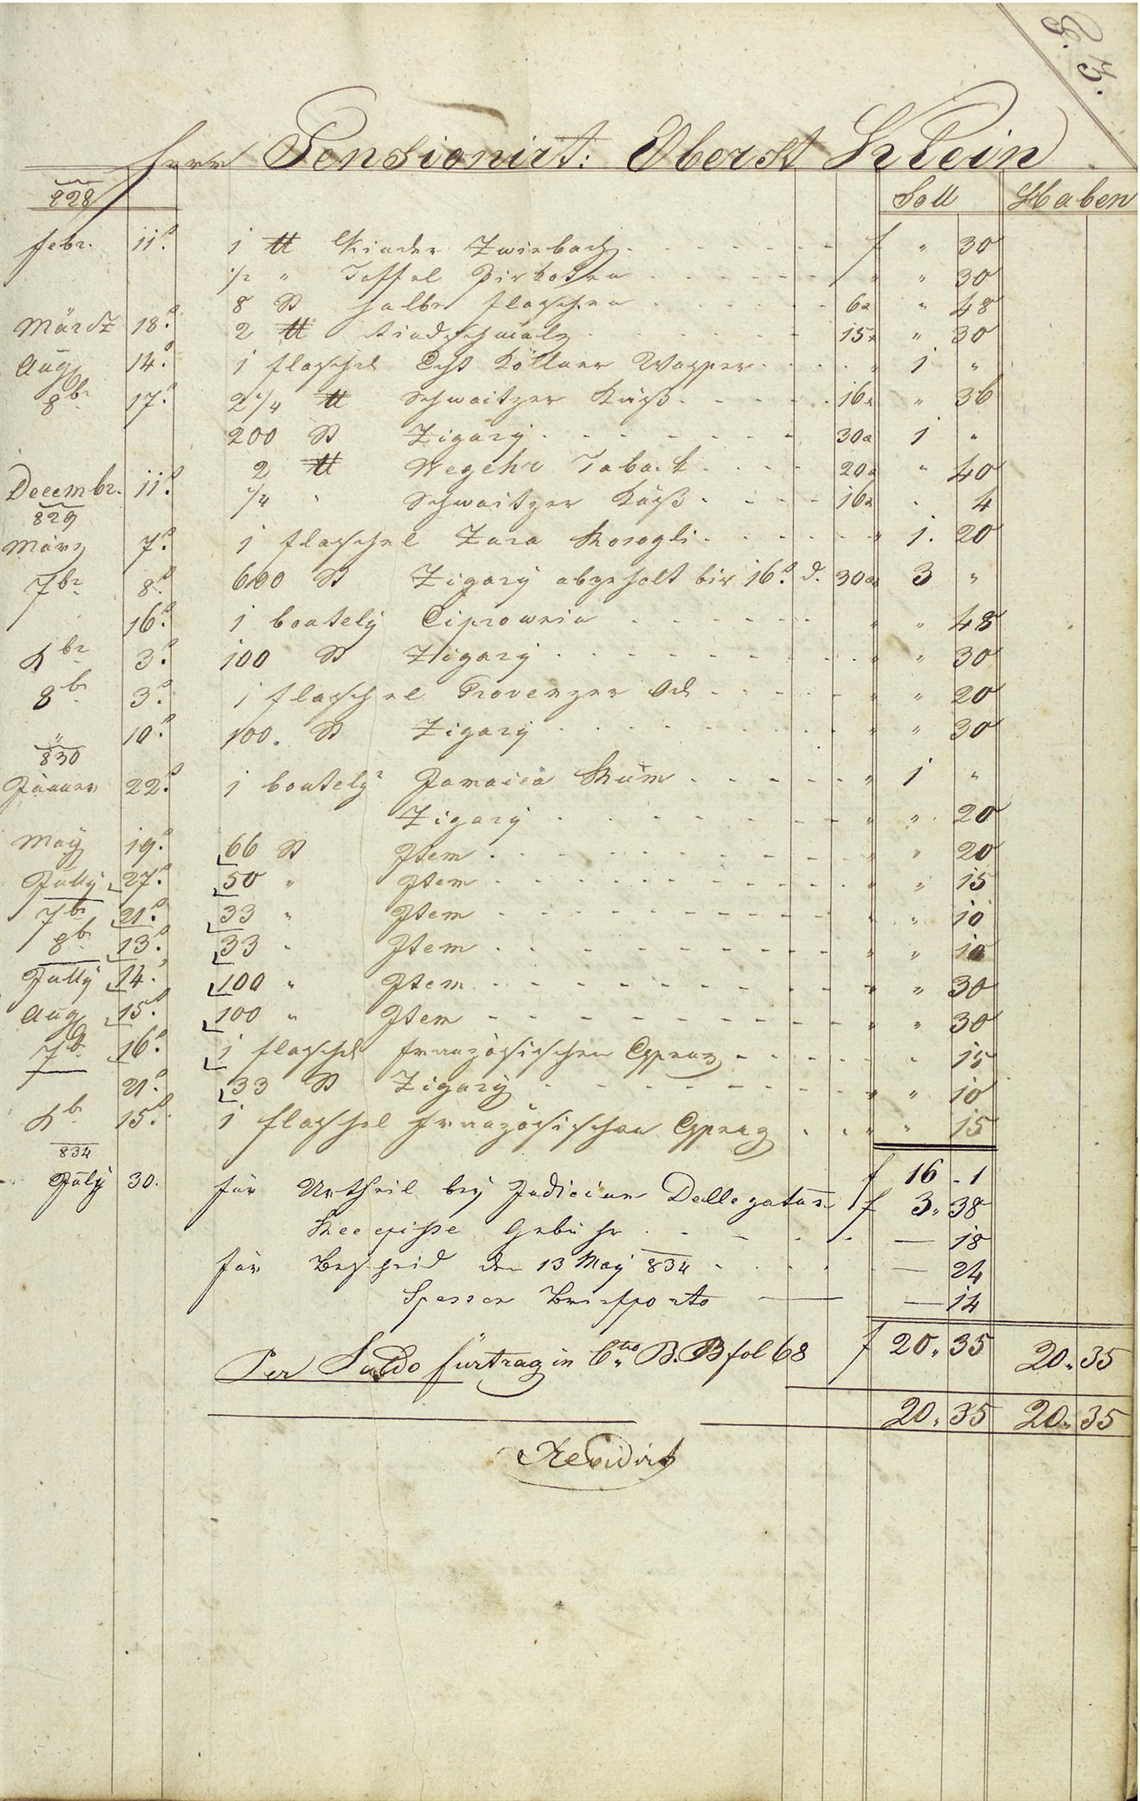 85.
Herr Pensionirt: Oberst Klein
828 Soll Haben
Febr. 11. 1 ℔ Kinder Zwieback f " 30
1/2 " Taffel " " 30
8 St halbe Flaschen 6x " 48
Märdz 18. 2 ℔ Rindschmalz 15x " 30
Aug 14. 1 Flaschel Echt Köllner Wasser " 1 "
8br 17. 2 1/4 ℔ Schweitzer Käsß 16x " 36
200 St Zigary 30x 1 "
2 ℔ Taback 20x " 40
Decembr. 11. 1/4 " Schweitzer Käsß 16x " 4
829
März 7. 1 Flaschel Zara Rosogli " 1. 20
7br 8. 600 St Zigary abgeholt bis 16. d. 30x 3 "
16. 1 boutely Ciprowein " " 48
Xbr 3. 100 St Zigary " " 30
8br 3. 1 Flaschel Provenzer Oel " " 20
" 10. 100. St Zigary " " 30
830
Jänner 22. 1 boutely Jamaica Rum " 1 "
Zigary " " 20
May 19. 66 St Item " " 20
Jully 27. 50 " Item " " 15
7br 21. 33 " Item " " 10
8br 13. 33 " Item " " 10
Jully 14. 100 " Item " " 30
Aug 15. 100 " Item " " 30
7br 16. 1 Flaschel französischen " 15
21. 33 St Zigary " " 10
Xbr 15. 1 Flaschel französischen " " 15
f 16 - 1
834
July 30. für Urtheil bey Judicium Dellegatum f 3 " 38
Recepisse Gebühr — 18
für Bescheid den 13 May 834 — 24
Spesen Briefporto — 14
f 20 " 35
Per Saldo fürtrag in Cto B. B fol 68 20 " 35
20 " 35 20 " 35
Revidirt